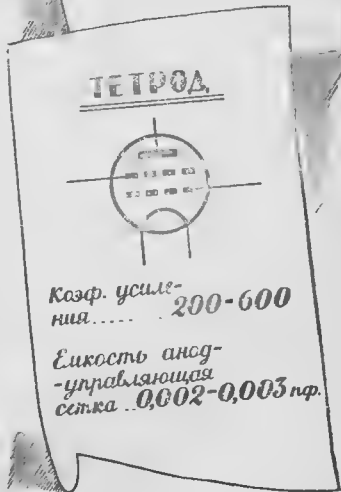 ТЕТРОД.
Коэф. усиле-
ния..... . 200-600
Емкость анод-
-управляющая
сетка ..0,002-0,003 пф.